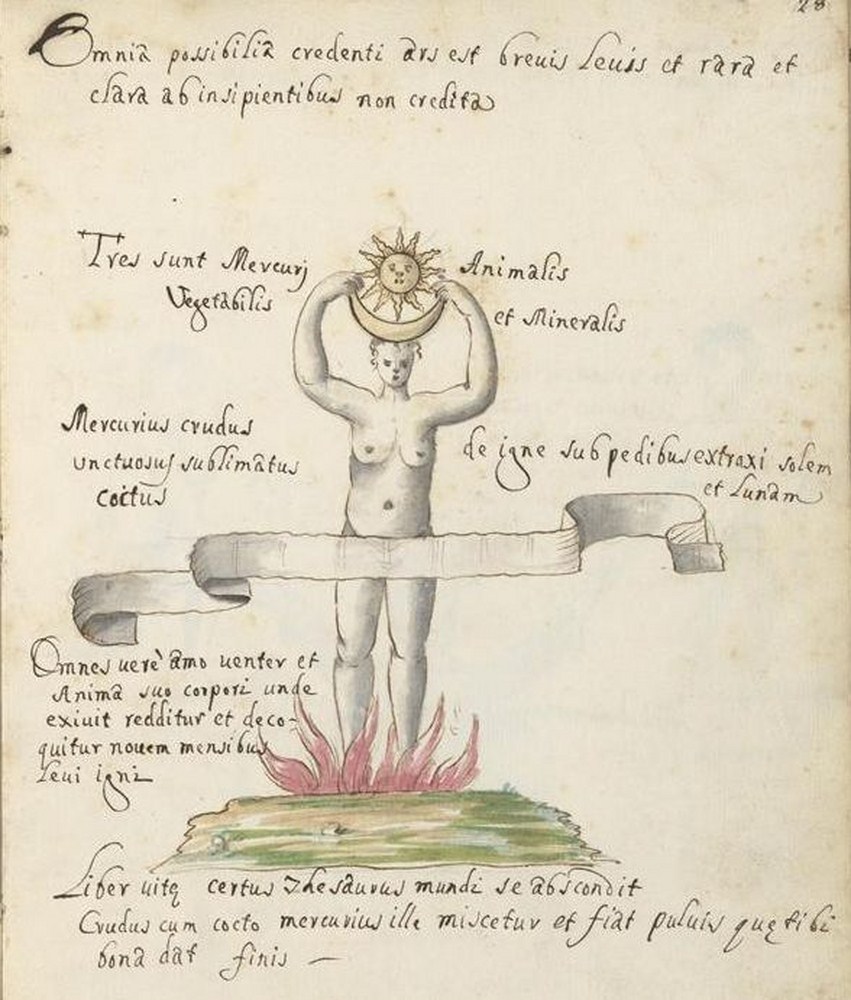 28
Omnia possibilia credenti ars est brevis levis et rara et
clara ab insipientibus non credita
Tres sunt Mercurj
Vegetabilis
Animalis
et Mineralis
Mercurius crudus
unctuosus sublimatus
coctus
de igne sub pedibus extraxi solem
et Lunam
Omnes uerè amo uenter et
Anima suo corpori unde
exiuit redditur et deco-
quitur nouem mensibus
leui igni
Liber uitę certus Thesaurus mundi se abscondit
Crudus cum cocto mercurius ille miscetur et fiat puluis quę tibi
bona dat finis